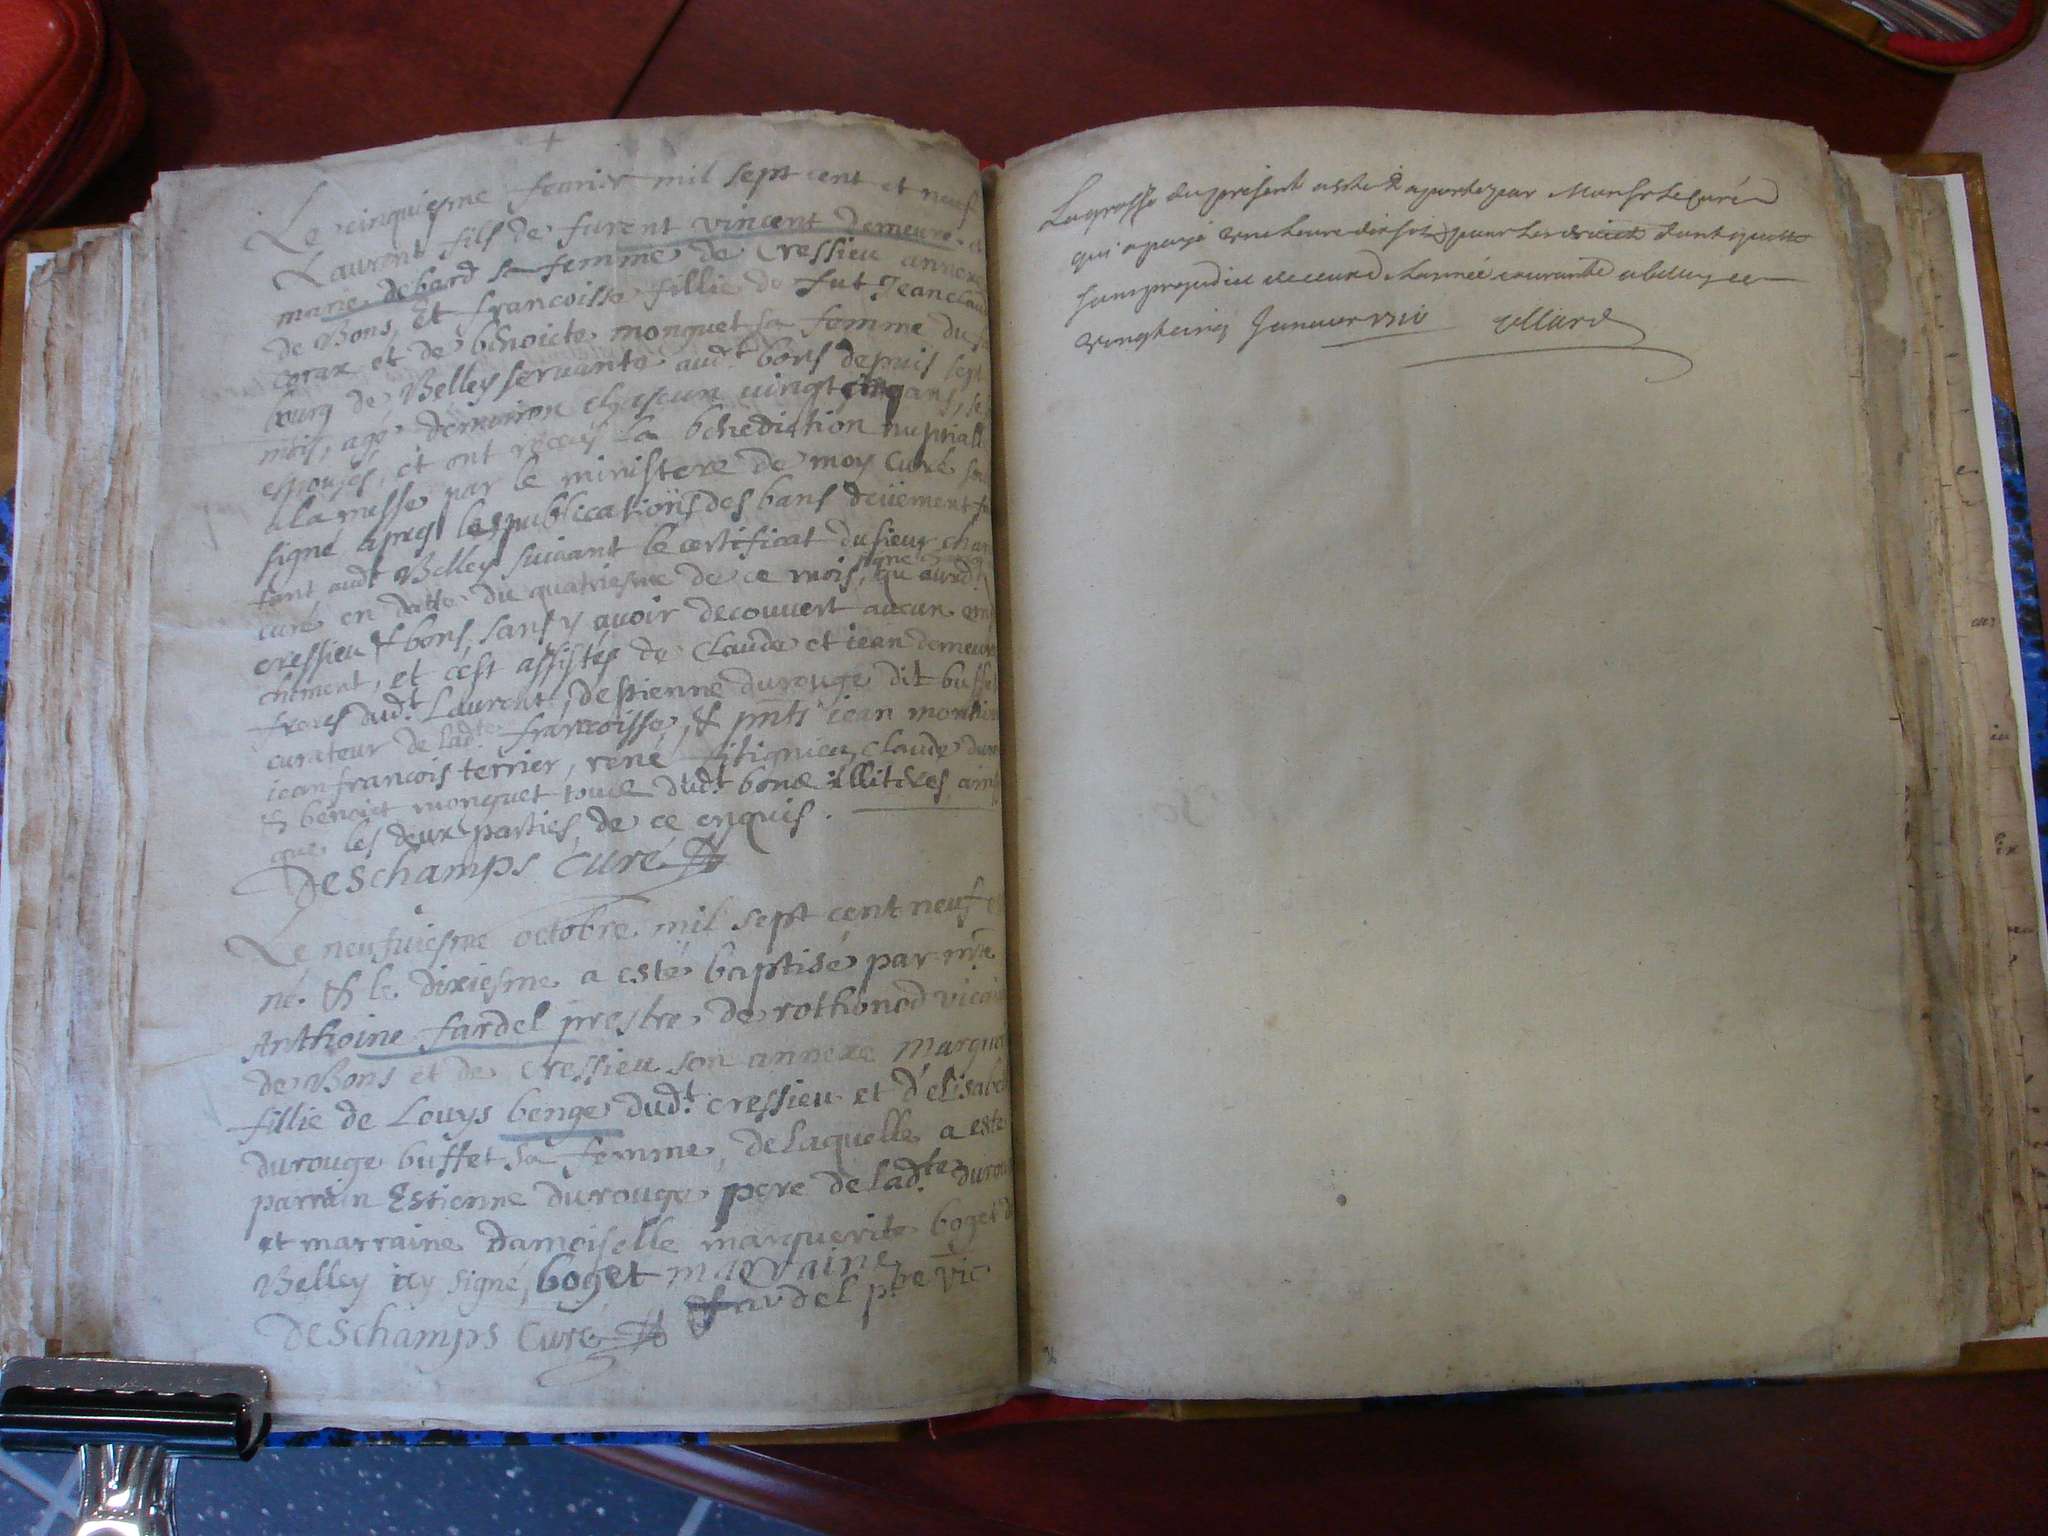 Le cinquiesme feurier mil sept cent et neuf
Laurent fils de furent vincent demeure et
marie debard sa femme de Cressieu annexe
de Bons, Et francoisse fillie de fut Jean claud
corax et de benoicte monguet sa femme du
bourg de Belley servante aud.t bons depuis sept
mois, agé denuiron chascun uingt cinq ans, se
espousés, et ont receus la benediction nuptiall
a la messe par le ministere de moy Curé sou
signé apres les publications des bans deüement fa
tant aud.t Belley suiuant le certificat du sieur
curé en datte du quatriesme de ce mois, signé qu'aud.t
cressieu & bons, sans y auoir decouuert aucun em
chement, et c'est assistés de Claude et iean demeure
freres dud.t Laurent, destienne durouge dit buffe
curateur de lad.te francoisse, & pnts iean
iean francois terrier, rené fitignieu, claude du
& benoict monguet tous dud.t bons illiteres, ainsi
que les deux parties de ce enquis.
Deschamps Curé
Le neufuiesme octobre mil sept cent neuf e
né. & le dixiesme a esté baptisé par m.re
Anthoine fardel prestre de rothonod vicaire
de Bons et de cressieu son annexe Margue
fillie de Louys benge dud.t cressieu et d'elisabet
durouge buffet sa femme, de laquelle a esté
parrain Estienne durouge pere de lad.te durou
et marraine damoiselle marguerite boget de
Belley icy signé, boget marraine
fardel p.bre vic
Deschamps Curé
La grosse du present a esté aportez par Monsr le Curé
qui a payé une liure dix sols pour les droicts
sans prejudice de ceux de l'année courante a belley ce
vingtcinq Januier 1710